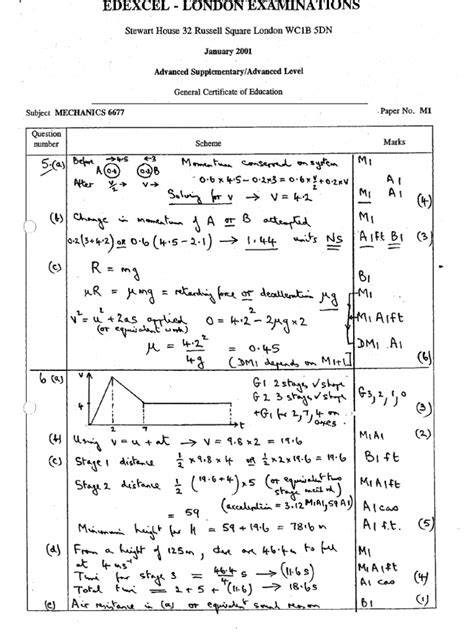 EDEXCEL - LONDON EXAMINATIONS
Stewart House 32 Russell Square London WC1B 5DN
January 2001
Advanced Supplementary/Advanced Level
General Certificate of Education
Subject MECHANICS 6677 Paper No. M1
Question number Scheme Marks
5.(a) Before →4.5 ←3 Momentum conserved on system M1
A (0.6) (0.2) B 0.6 x 4.5 - 0.2x3 = 0.6 x v/2 + 0.2 x v A1
After → v/2 → v Solving for v → v = 4.2 M1 A1 (4)
(b) Change in momentum of A or B attempted M1
0.2(3+4.2) or 0.6(4.5-2.1) → 1.44 units NS A1ft B1 (3)
(c) R = mg B1
μR = μmg = retarding force or deceleration μg M1
v² = u² + 2as applied 0 = 4.2² - 2μg x 2 M1 A1ft
(or equivalent work)
μ = 4.2²/4g = 0.45 DM1 A1
(DM1 depends on M1+1) (6)
6 (a) v G1 2 stages ✓ shape
G2 3 stages ✓ shape G3,2,1,0
4 +G1 for 2,7,4 on axes (3)
2 7 t
(b) Using v = u + at → v = 9.8 x 2 = 19.6 M1A1 (2)
(c) Stage 1 distance ½ x 9.8 x 4 or ½ x 2 x 19.6 = 19.6 B1 ft
Stage 2 distance ½ (19.6+4) x 5 (or equivalent two stage method) M1A1ft
= 59 (acceleration = 3.12 M1A1, 59 A1) A1 cao
Minimum height for H = 59 + 19.6 = 78.6 m A1 f.t. (5)
(d) From a height of 125m, there are 46.4m to fall M1
at 4 ms⁻¹
Time for stage 3 = 46.4/4 s → (11.6 s) M1 A1ft
Total time = 2 + 5 + (11.6) → 18.6s A1 cao (4)
(e) Air resistance in (a) or equivalent reason B1 (1)